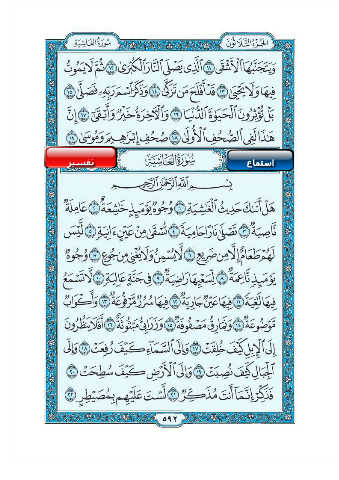 سُورَةُ الغَاشِيَةِ الجُزْءُ الثَّلَاثُونَ
وَيَتَجَنَّبُهَا الْأَشْقَى ١١ الَّذِي يَصْلَى النَّارَ الْكُبْرَى ١٢ ثُمَّ لَا يَمُوتُ
فِيهَا وَلَا يَحْيَى ١٣ قَدْ أَفْلَحَ مَن تَزَكَّى ١٤ وَذَكَرَ اسْمَ رَبِّهِ فَصَلَّى ١٥
بَلْ تُؤْثِرُونَ الْحَيَوٰةَ الدُّنْيَا ١٦ وَالْآخِرَةُ خَيْرٌ وَأَبْقَى ١٧ إِنَّ
هَٰذَا لَفِي الصُّحُفِ الْأُولَى ١٨ صُحُفِ إِبْرَٰهِيمَ وَمُوسَى ١٩
استماع
سُورَةُ الغَاشِيَةِ
تفسير
بِسْمِ اللَّهِ الرَّحْمَٰنِ الرَّحِيمِ
هَلْ أَتَىٰكَ حَدِيثُ الْغَٰشِيَةِ ١ وُجُوهٌ يَوْمَئِذٍ خَٰشِعَةٌ ٢ عَامِلَةٌ
نَّاصِبَةٌ ٣ تَصْلَى نَارًا حَامِيَةً ٤ تُسْقَى مِنْ عَيْنٍ ءَانِيَةٍ ٥ لَّيْسَ
لَهُمْ طَعَامٌ إِلَّا مِن ضَرِيعٍ ٦ لَّا يُسْمِنُ وَلَا يُغْنِي مِن جُوعٍ ٧ وُجُوهٌ
يَوْمَئِذٍ نَّاعِمَةٌ ٨ لِّسَعْيِهَا رَاضِيَةٌ ٩ فِي جَنَّةٍ عَالِيَةٍ ١٠ لَّا تَسْمَعُ
فِيهَا لَٰغِيَةً ١١ فِيهَا عَيْنٌ جَارِيَةٌ ١٢ فِيهَا سُرُرٌ مَّرْفُوعَةٌ ١٣ وَأَكْوَابٌ
مَّوْضُوعَةٌ ١٤ وَنَمَارِقُ مَصْفُوفَةٌ ١٥ وَزَرَابِيُّ مَبْثُوثَةٌ ١٦ أَفَلَا يَنظُرُونَ
إِلَى الْإِبِلِ كَيْفَ خُلِقَتْ ١٧ وَإِلَى السَّمَاءِ كَيْفَ رُفِعَتْ ١٨ وَإِلَى
الْجِبَالِ كَيْفَ نُصِبَتْ ١٩ وَإِلَى الْأَرْضِ كَيْفَ سُطِحَتْ ٢٠
فَذَكِّرْ إِنَّمَا أَنتَ مُذَكِّرٌ ٢١ لَّسْتَ عَلَيْهِم بِمُصَيْطِرٍ ٢٢
٥٩٢